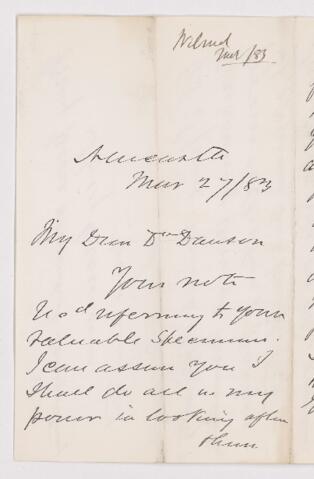 Mar/83
Newcastle
Mar 27/83
My Dear Dr Dawson
Your note
Recd referring to your
valuable Specimens.
I can assure you I
Shall do all in my
power in looking after
them